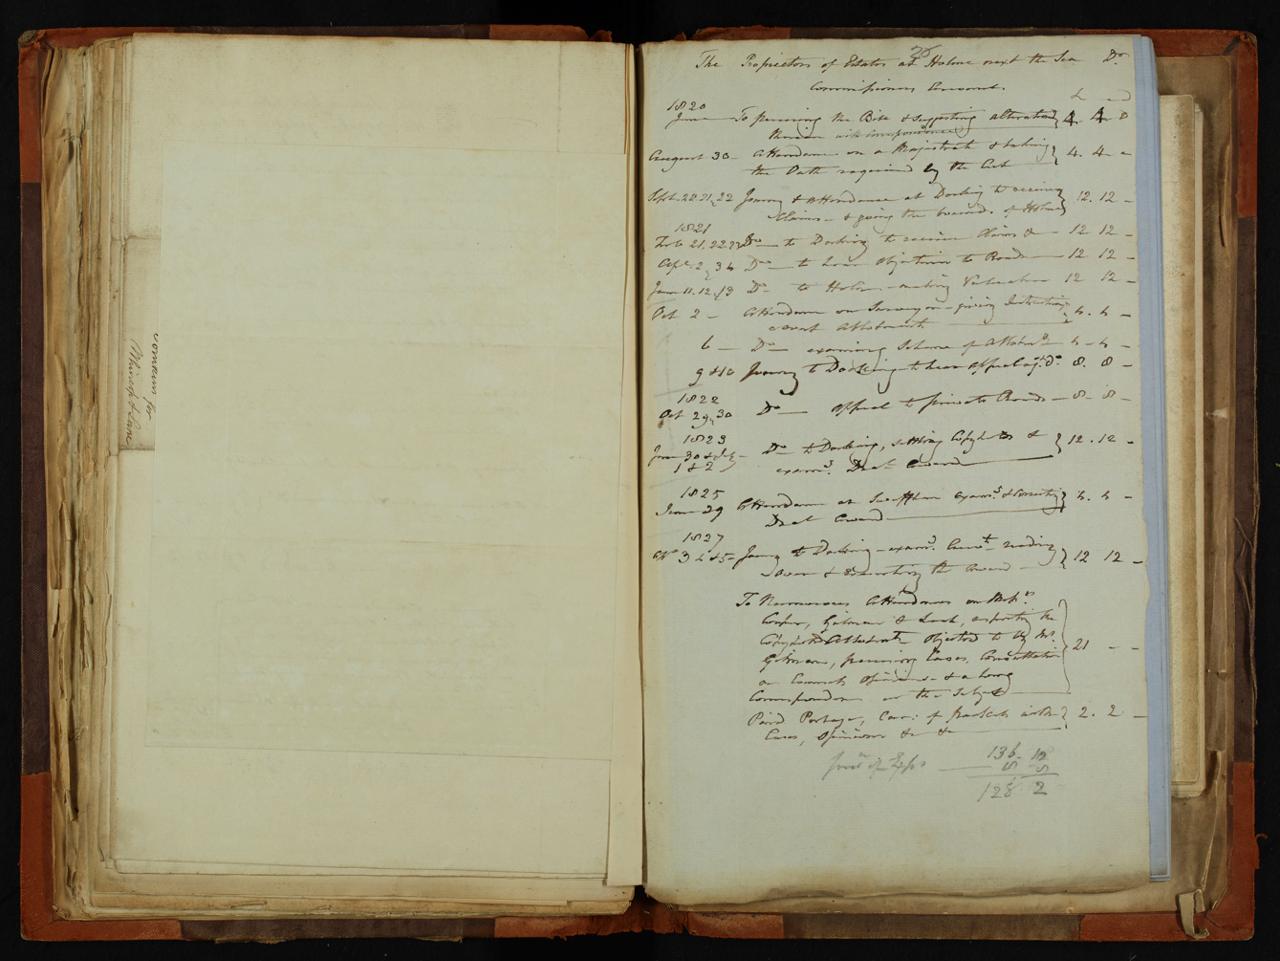 26
The Proprietors of Estates at Holme next the Sea Dr
Commissioners Account.
£
1820
June To perusing the Bill & suggesting alterations 4. 4 0
therein with Correspondence
August 30 - Attendance on a Magistrate & taking 4. 4 -
the Oath required by the Act
Sept. 20. 21, 22 Journey & Attendance at Docking to receive 12. 12 -
Claims - & going the bounds. of Holme
1821
Feb 21, 22, 23 Do - to Docking to receive Claims & - 12 12 -
Apl. 2, 3 4 Do - to hear Objections to Roads - 12 12 -
June 11. 12, 13 Do to Holme - making Valuation 12 12 -
Oct 2 - Attendance on Surveyor - giving Instructions 4. 4 -
about Allotments
6 - Do - examining Scheme of Allotmts 4 - 4 -
9 & 10 Journey to Docking to hear Appeal agt. Do 8. 8 -
1822
Oct 29, 30 Do - Appeal to private Roads - 8 - 8 -
1823
June 30 & July Do to Docking, settling Copyholds & 12. 12 -
1 & 2 examg. Draft Award
1825
June 29 Attendance at Swaffham examg & correcting 4. 4 -
Draft Award
1827
3 4 & 5 - Journey to Docking - examg. Accounts - reading 12 12 -
over & executing the Award -
To Numerous Attendances on Messrs
Cooper, & Lord, respecting the
Copyhold Allotments Objected to by Mr. 21 - -
perusing Cases, Consultations
on Counsels Opinions - & a long
Correspondence on the Subject
Paid Postage, Car: of packets with 2. 2 -
Cases, Opinions &c &c
136 - 10
8 8
128 2
concern for